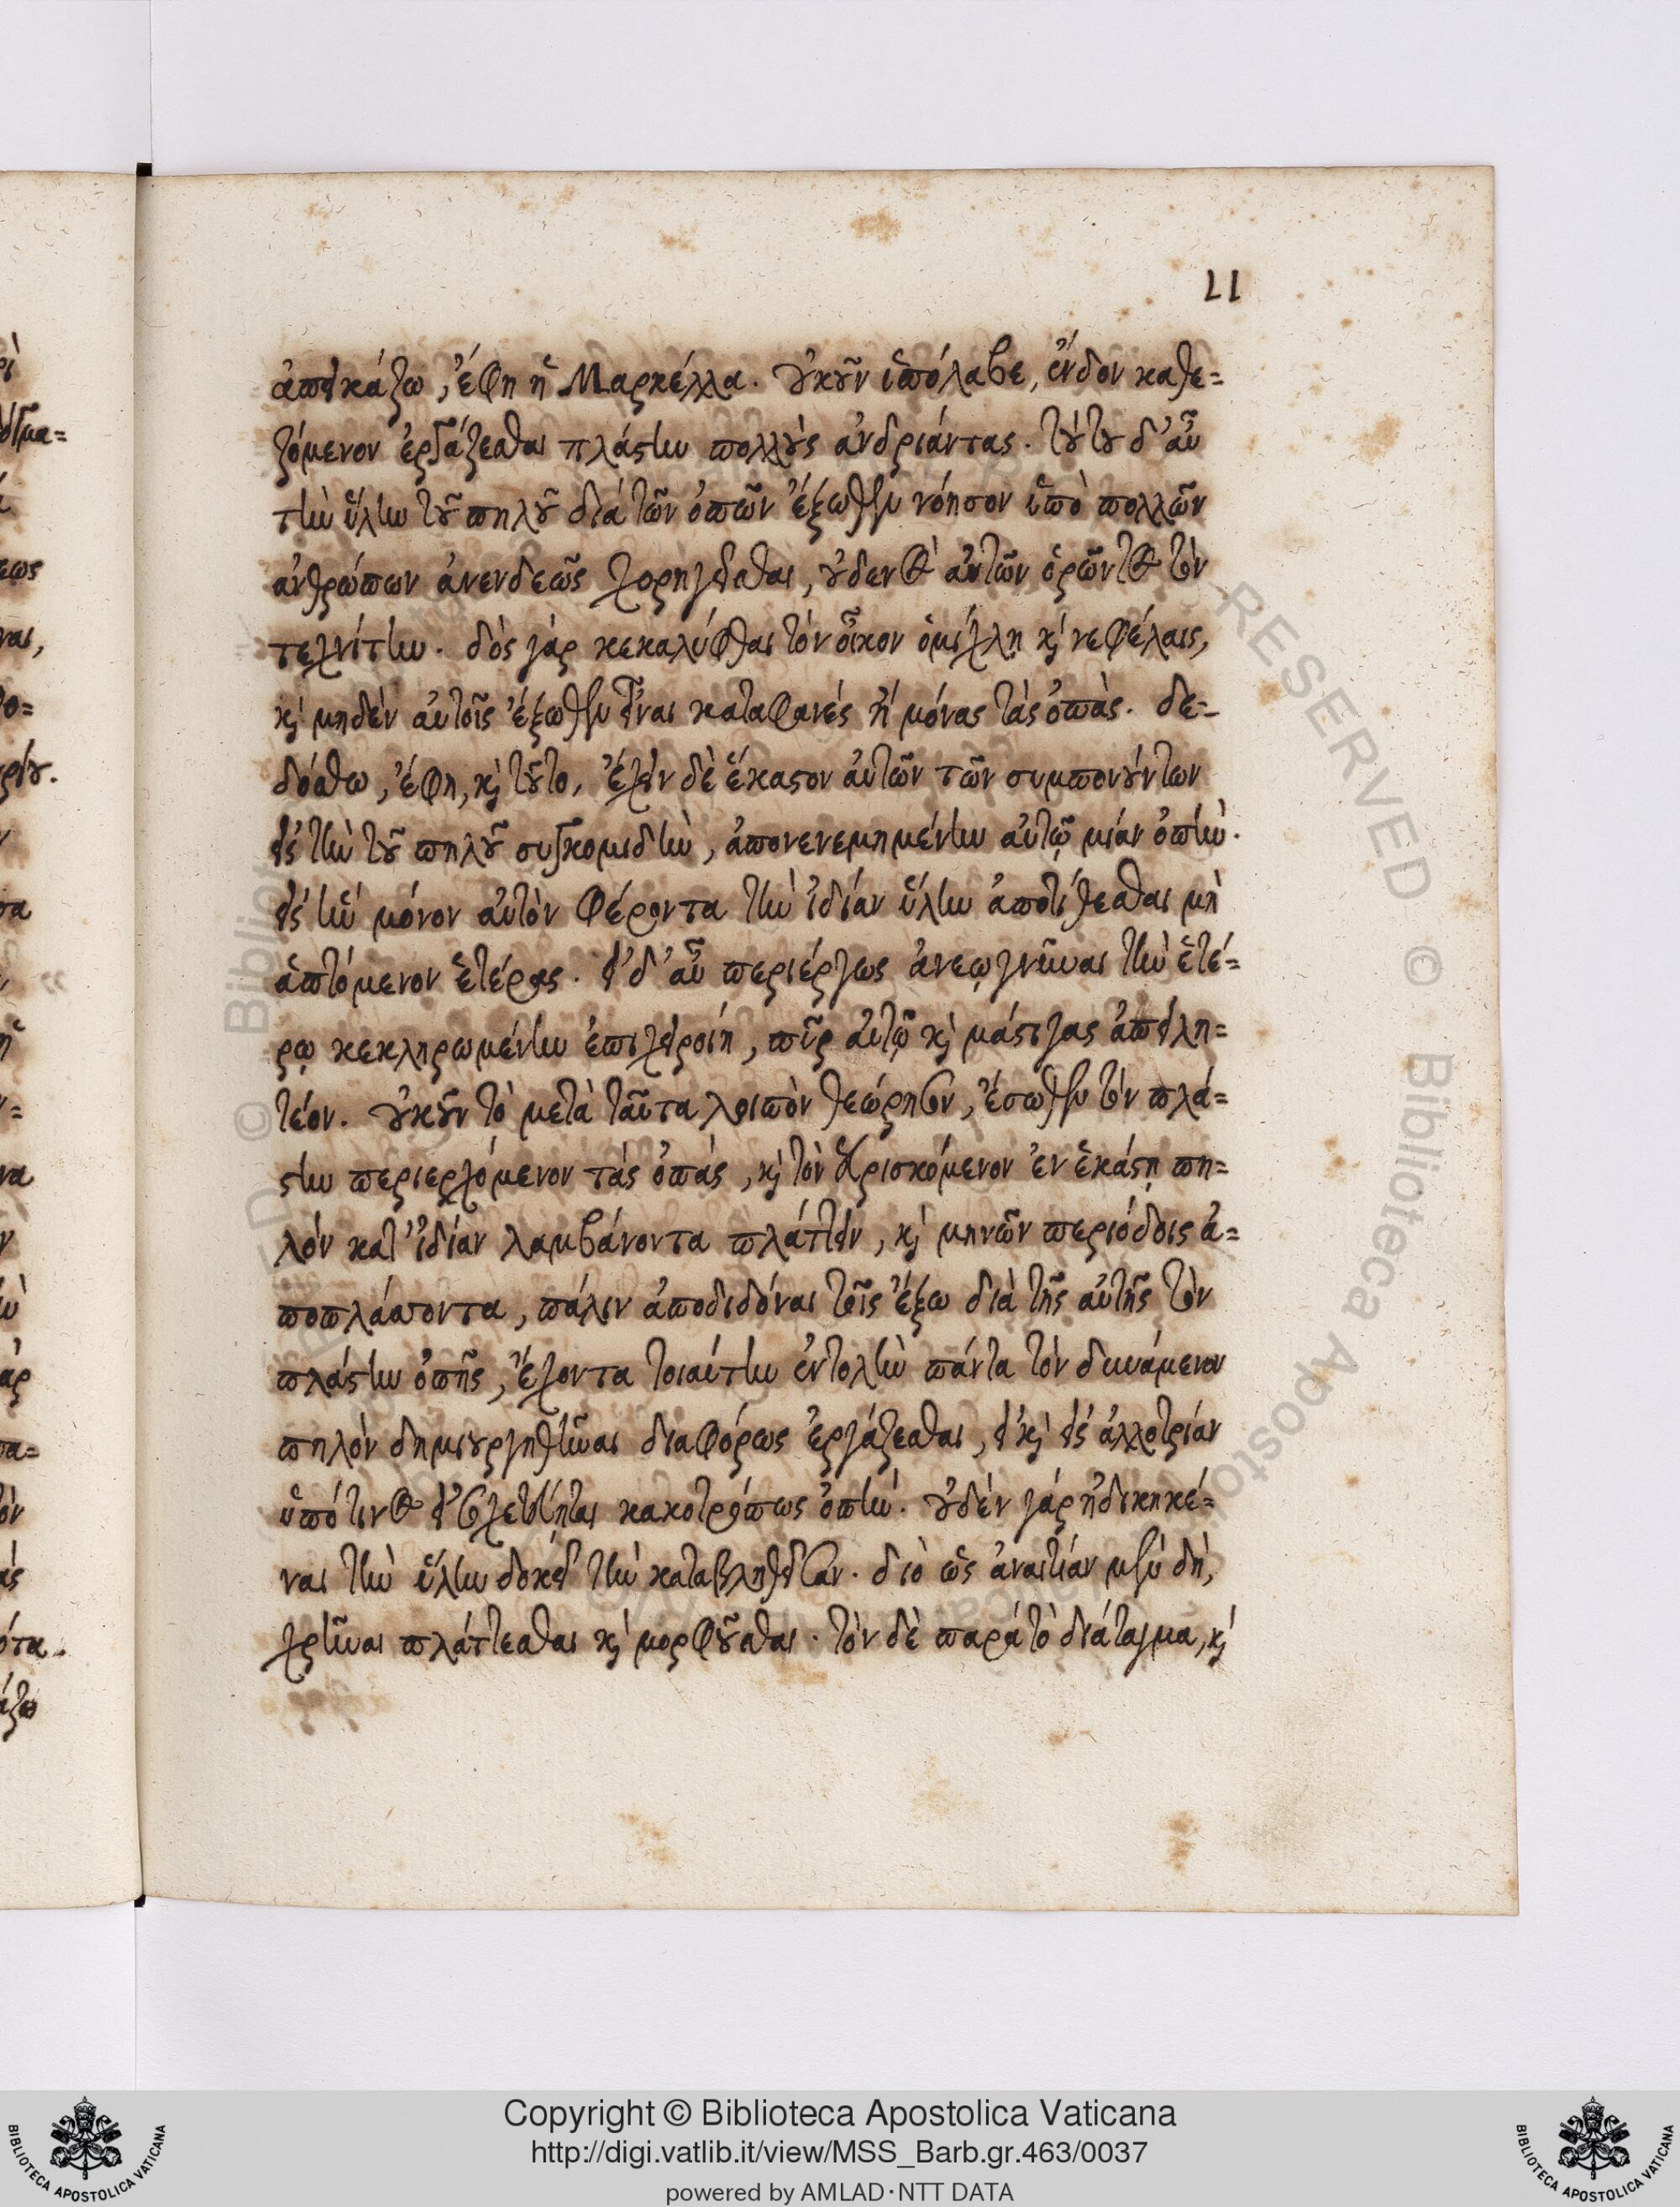 11
ἀπεικάζω, ἔφη ἡ Μαρκέλλα. οὐκοῦν ὑπόλαβε, ἔνδον καθε=
ζόμενον ἐργάζεσθαι πλάστην πολλοὺς ἀνδριάντας. τούτου δ' αὖ
τὴν ὕλην τοῦ πηλοῦ διὰ τῶν ὀπῶν ἔξωθεν νόησον ὑπὸ πολλῶν
ἀνθρώπων ἀνενδεῶς χορηγεῖσθαι, οὐδενὸς αὐτῶν ὁρῶντος τὸν
τεχνίτην. δὸς γὰρ κεκαλύφθαι τὸν οἶκον ὁμίχλῃ καὶ νεφέλαις,
καὶ μηδὲν αὐτοῖς ἔξωθεν εἶναι καταφανές ἢ μόνας τὰς ὀπὰς. δε-
δόσθω, ἔφη, καὶ τοῦτο, ἔχειν δὲ ἕκαστον αὐτῶν τῶν συμπονούντων
εἰς τὴν τοῦ πηλοῦ συγκομιδὴν, ἀπονενεμημένην αὐτῷ μίαν ὀπὴν.
εἰς ἣν μόνον αὐτὸν φέροντα τὴν ἰδίαν ὕλην ἀποτίθεσθαι μὴ
ἁπτόμενον ἑτέρας. εἰ δ' αὖ περιέργως ἀνεῳγνῦναι τὴν ἑτέ=
ρῳ κεκληρωμένην ἐπιχειροίη, πῦρ αὐτῷ καὶ μάστιγας ἀπειλη=
τέον. οὐκοῦν τὸ μετὰ ταῦτα λοιπὸν θεώρησον, ἔσωθεν τὸν πλά=
στην περιερχόμενον τὰς ὀπάς, καὶ τὸν εὑρισκόμενον ἐν ἑκάστῃ πη=
λὸν κατ' ἰδίαν λαμβάνοντα πλάττειν, καὶ μηνῶν περιόδοις ἀ=
ποπλάσσοντα, πάλιν ἀποδιδόναι τοῖς ἔξω διὰ τῆς αὐτῆς τὸν
πλάστην ὀπῆς, ἔχοντα τοιαύτην ἐντολὴν πάντα τὸν δυνάμενον
πηλὸν δημιουργηθῆναι διαφόρως ἐργάζεσθαι, εἰ καὶ εἰς ἀλλοτρίαν
ὑπό τινος εἰσχεθείηται κακοτρόπως ὀπήν. οὐδὲν γὰρ ἠδικηκέ=
ναι τὴν ὕλην δοκεῖ τὴν καταβληθεῖσαν. διὸ ὡς ἀναιτίαν μὲν δὴ,
χρῆναι πλάττεσθαι καὶ μορφοῦσθαι. τὸν δὲ παρὰ τὸ διάταγμα, καὶ
Copyright © Biblioteca Apostolica Vaticana
http://digi.vatlib.it/view/MSS_Barb.gr.463/0037
powered by AMLAD·NTT DATA